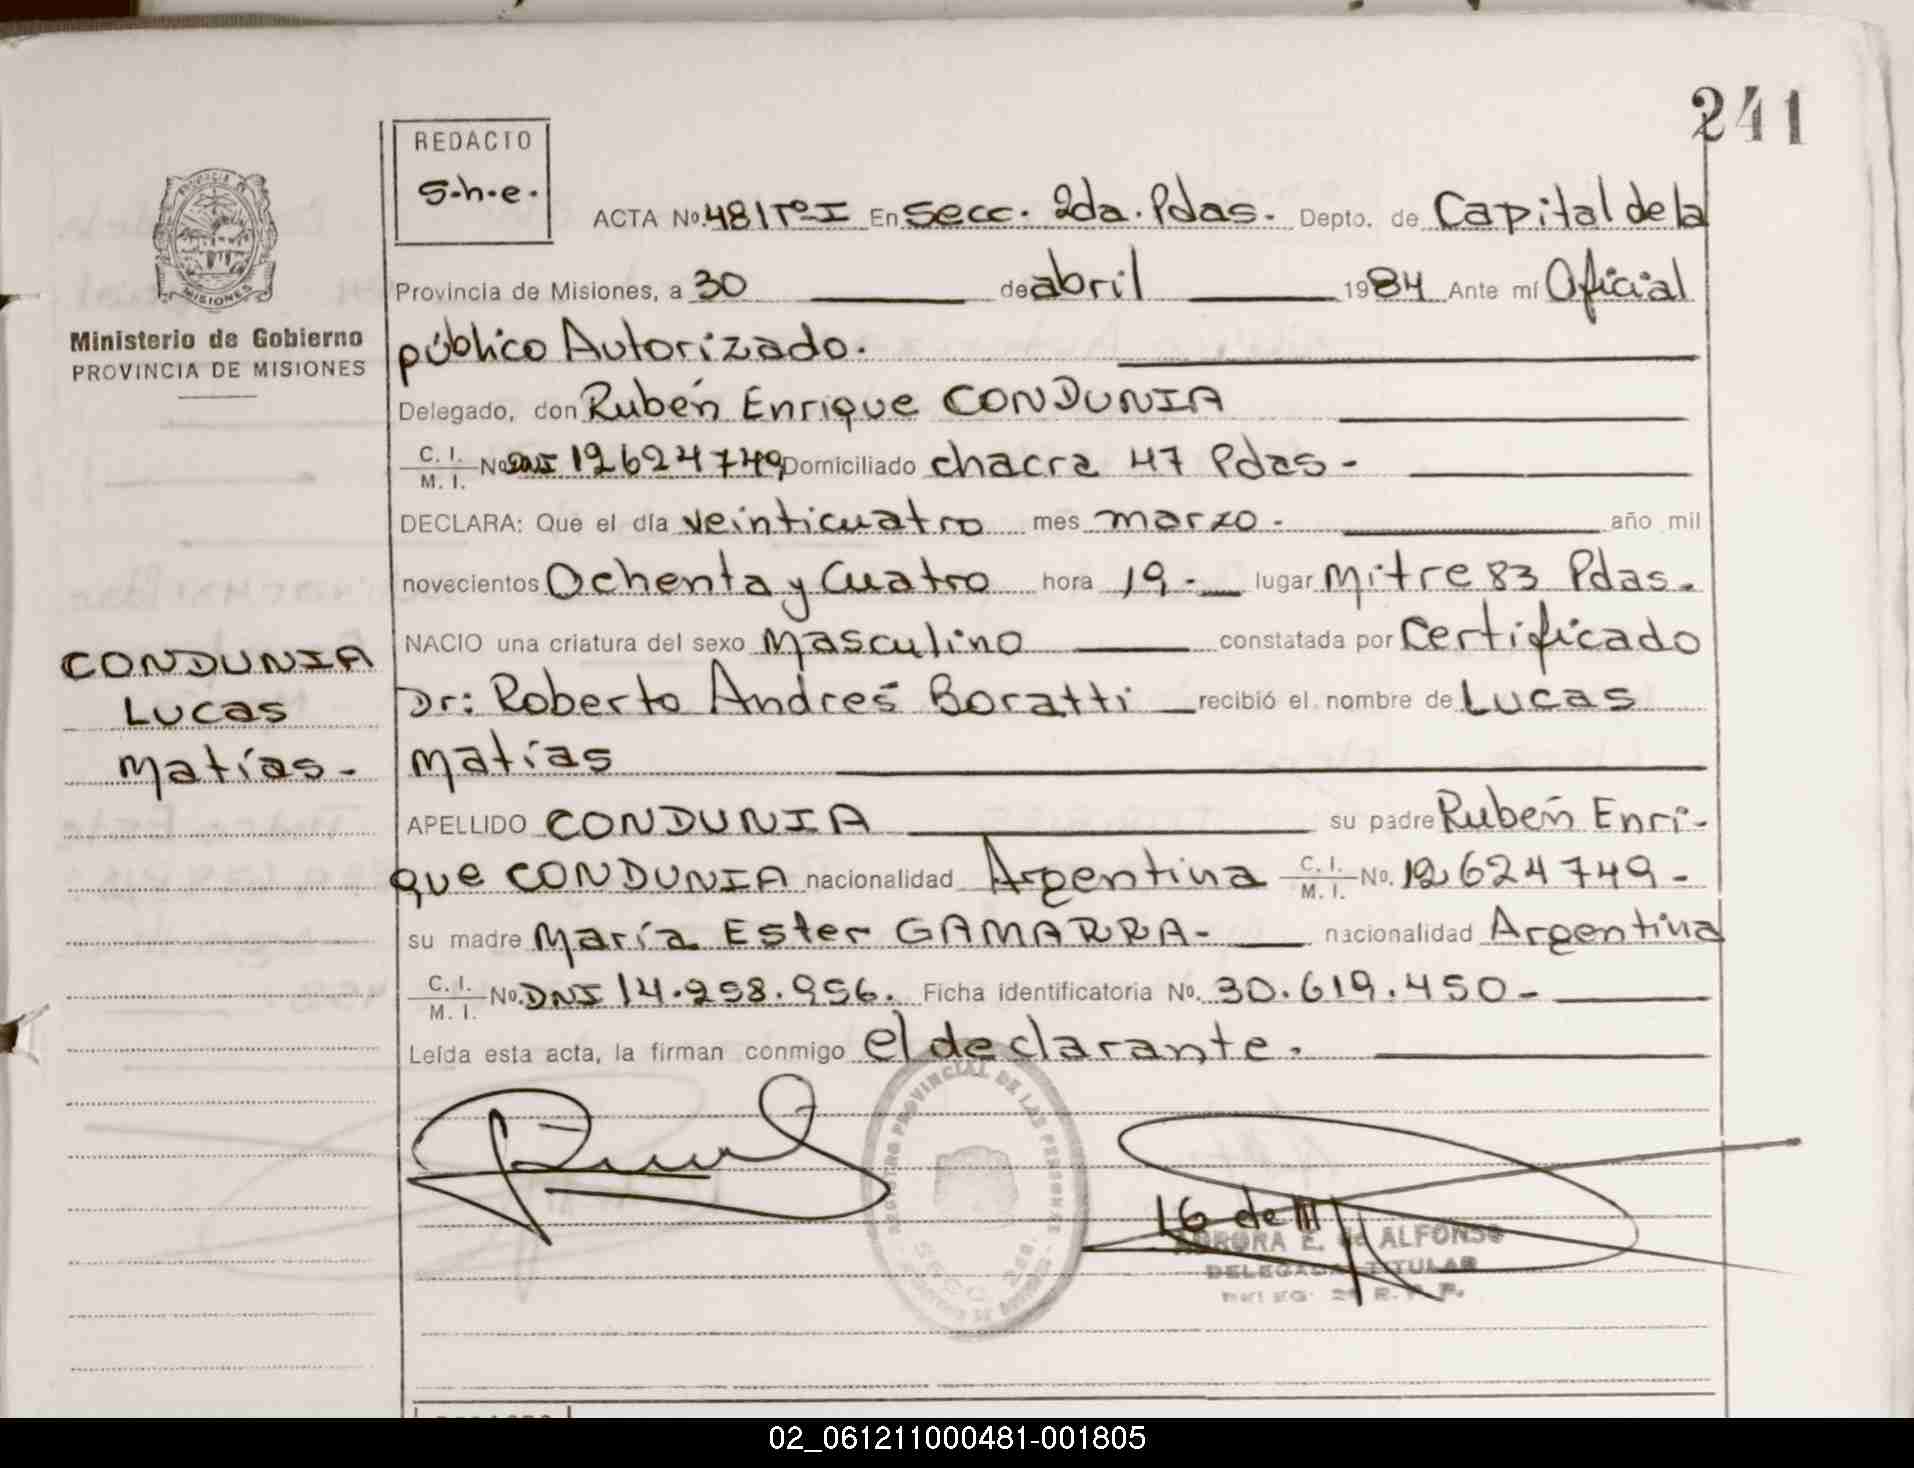 241
REDACTO
S.h.e.
ACTA No. 481 Tº I En Secc. 2da. Pdas. Depto. de Capital de la
Provincia de Misiones, a 30 de abril 1984 Ante mí Oficial
público Autorizado.
Delegado, don Rubén Enrique CONDUNIA
C. I.
M. I. No. DNI 12624749 Domiciliado chacra 47 Pdas-
DECLARA: Que el día veinticuatro mes marzo. año mil
novecientos Ochenta y Cuatro hora 19.- lugar Mitre 83 Pdas.
NACIO una criatura del sexo Masculino constatada por Certificado
Dr: Roberto Andrés Boratti recibió el nombre de Lucas
Matías
APELLIDO CONDUNIA su padre Rubén Enri-
que CONDUNIA nacionalidad Argentina C. I. M. I. No. 12624749-
su madre María Ester GAMARRA- nacionalidad Argentina
C. I.
M. I. No. DNI 14.258.956. Ficha identificatoria No. 30.619.450-
Leída esta acta, la firman conmigo el declarante.
MISIONES
Ministerio de Gobierno
PROVINCIA DE MISIONES
CONDUNIA
Lucas
Matías-
REGISTRO PROVINCIAL DE LAS PERSONAS
16 de III
AURORA E. de ALFONSO
DELEGADA TITULAR
DELEG. 2ª R. P. P.
02_061211000481-001805